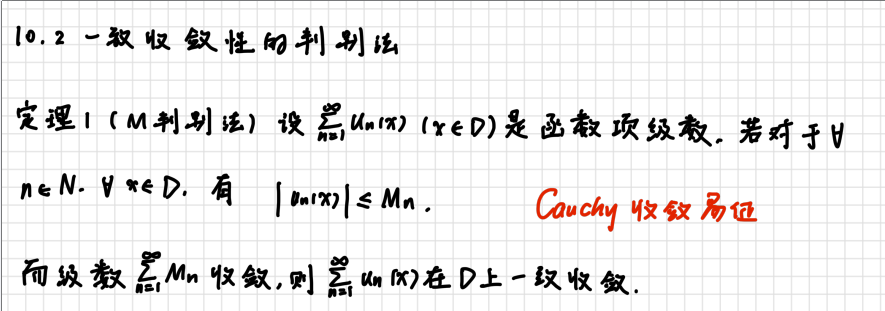 10.2 一致收敛性的判别法
定理1 (M判别法) 设 $\sum_{n=1}^{\infty} u_n(x)$ (x∈D) 是函数项级数. 若对于∀
n∈N. ∀ x∈D. 有 |u_n(x)| ≤ M_n. Cauchy 收敛易证
而级数 $\sum_{n=1}^{\infty} M_n$ 收敛, 则 $\sum_{n=1}^{\infty} u_n(x)$ 在D上一致收敛.